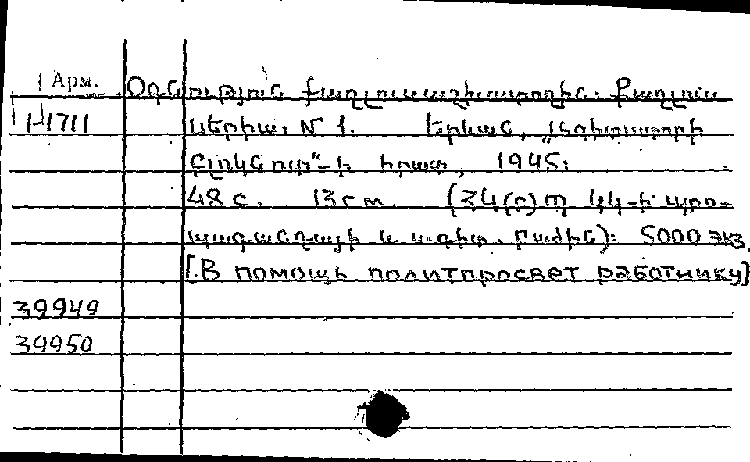 Арм. Օգնություն քաղլուսաշխատողին. Քաղլուս
1-1711
սերիա. № 1. Երևան,
ընկեր -ի հրատ, 1945։
48 с. 13 см. (ՀԿ(բ)Պ ԿԿ-ի պրո-
պագանդայի և ագիտ. բաժին)։ 5000 экз.
[В помощь политпросвет работнику]
39949
39950